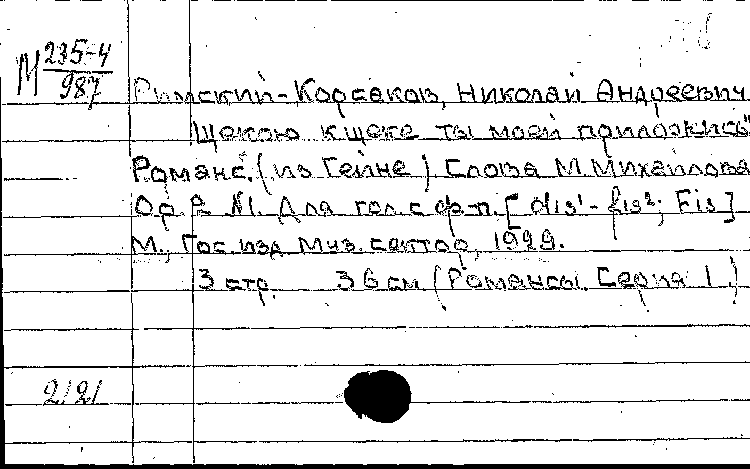 М 235-4
987
Римский-Корсаков, Николай Андреевич
Щекою к щеке ты моей приложись"
Романс. (из Гейне) Слова М. Михайлова
Op. 2 №1. Для гол. с ф-п. [dis¹-fis²; Fis]
М., Гос. изд. Муз. сектор, 1929.
3 стр. 36 см (Романсы. Серия I.)
2121